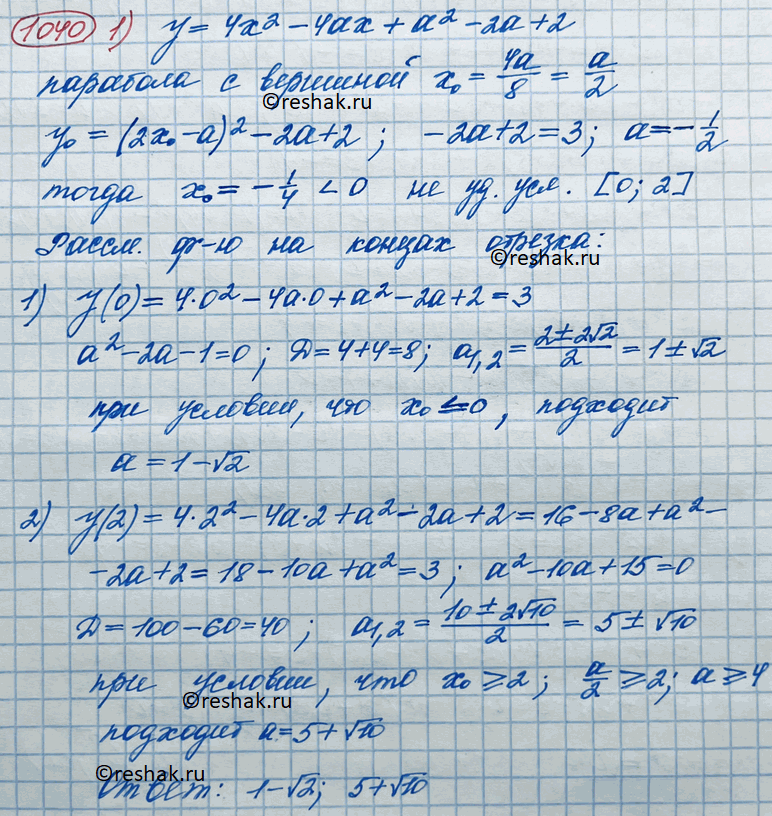 1040 1) y = 4x² - 4ax + a² - 2a + 2
парабола с вершиной x₀ = 4a/8 = a/2
©reshak.ru
y₀ = (2x₀ - a)² - 2a + 2 ; -2a + 2 = 3; a = -1/2
тогда x₀ = -1/4 < 0 не уд. усл. [0; 2]
Рассм. ф-ю на концах отрезка:
©reshak.ru
1) y(0) = 4·0² - 4a·0 + a² - 2a + 2 = 3
a² - 2a - 1 = 0 ; D = 4 + 4 = 8; a₁,₂ = (2 ± 2√2)/2 = 1 ± √2
при условии, что x₀ ≤ 0 , подходит
a = 1 - √2
2) y(2) = 4·2² - 4a·2 + a² - 2a + 2 = 16 - 8a + a² -
- 2a + 2 = 18 - 10a + a² = 3 ; a² - 10a + 15 = 0
D = 100 - 60 = 40 ; a₁,₂ = (10 ± 2√10)/2 = 5 ± √10
при условии, что x₀ ≥ 2 ; a/2 ≥ 2; a ≥ 4
©reshak.ru
подходит a = 5 + √10
©reshak.ru
Ответ: 1 - √2; 5 + √10